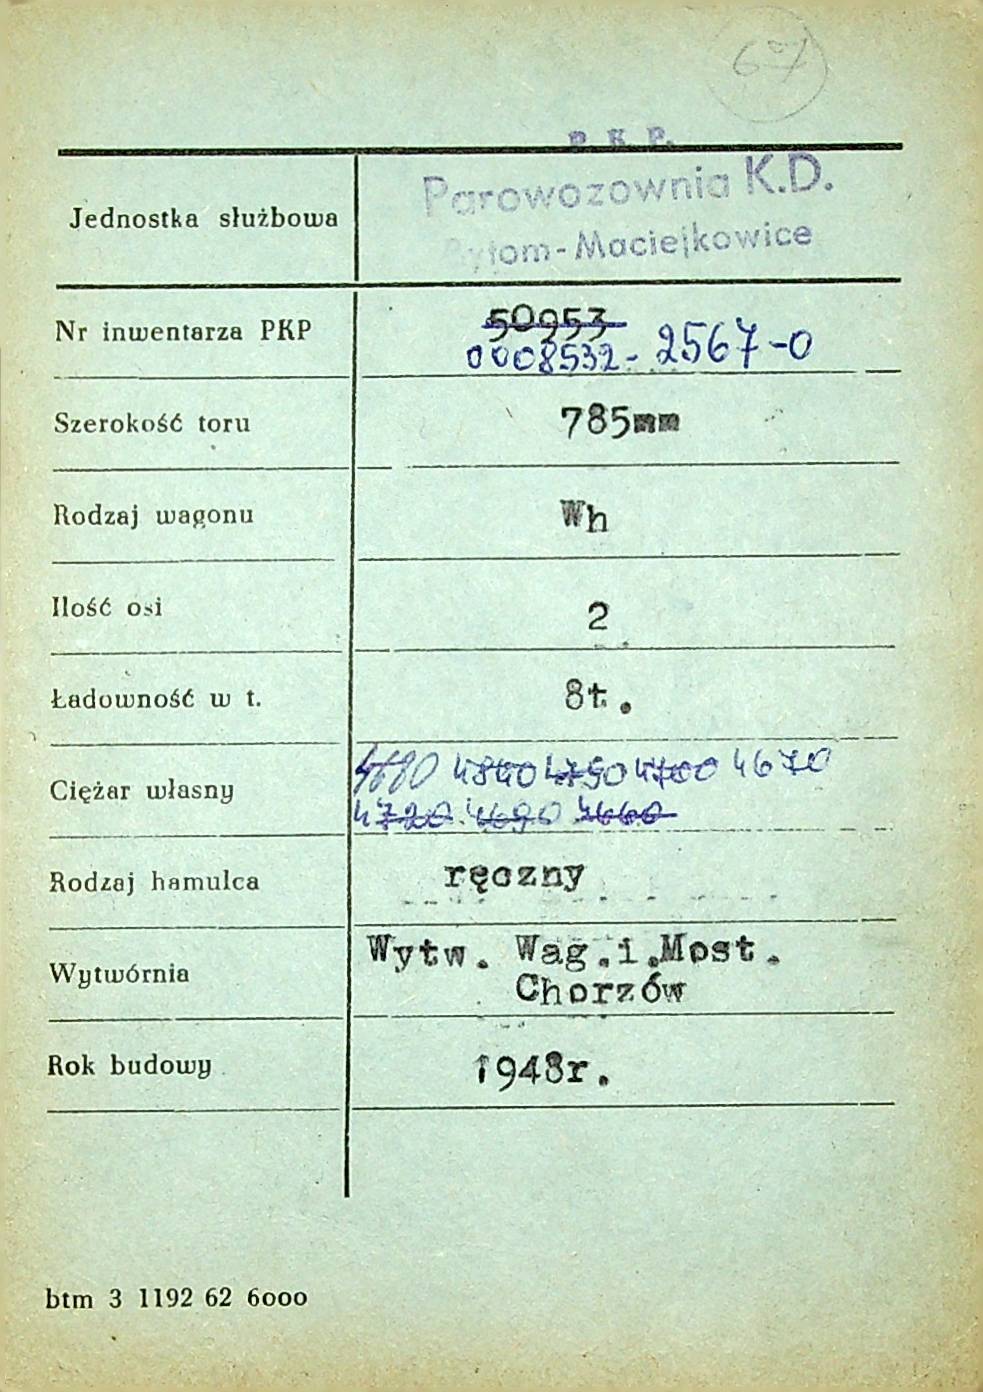 67
P. K. P.
Parowozownia K.D.
Jednostka służbowa
Bytom-Maciejkowice
50953
Nr inwentarza PKP
0008532- 2567-0
Szerokość toru 785mm
Rodzaj wagonu Wh
Ilość osi 2
Ładowność w t. 8t.
4840 4790 4700 4670
Ciężar własny
4720 4690 4660
Rodzaj hamulca ręczny
Wytw. Wag.i.Most.
Wytwórnia
Chorzów
Rok budowy 1948r.
btm 3 1192 62 6000